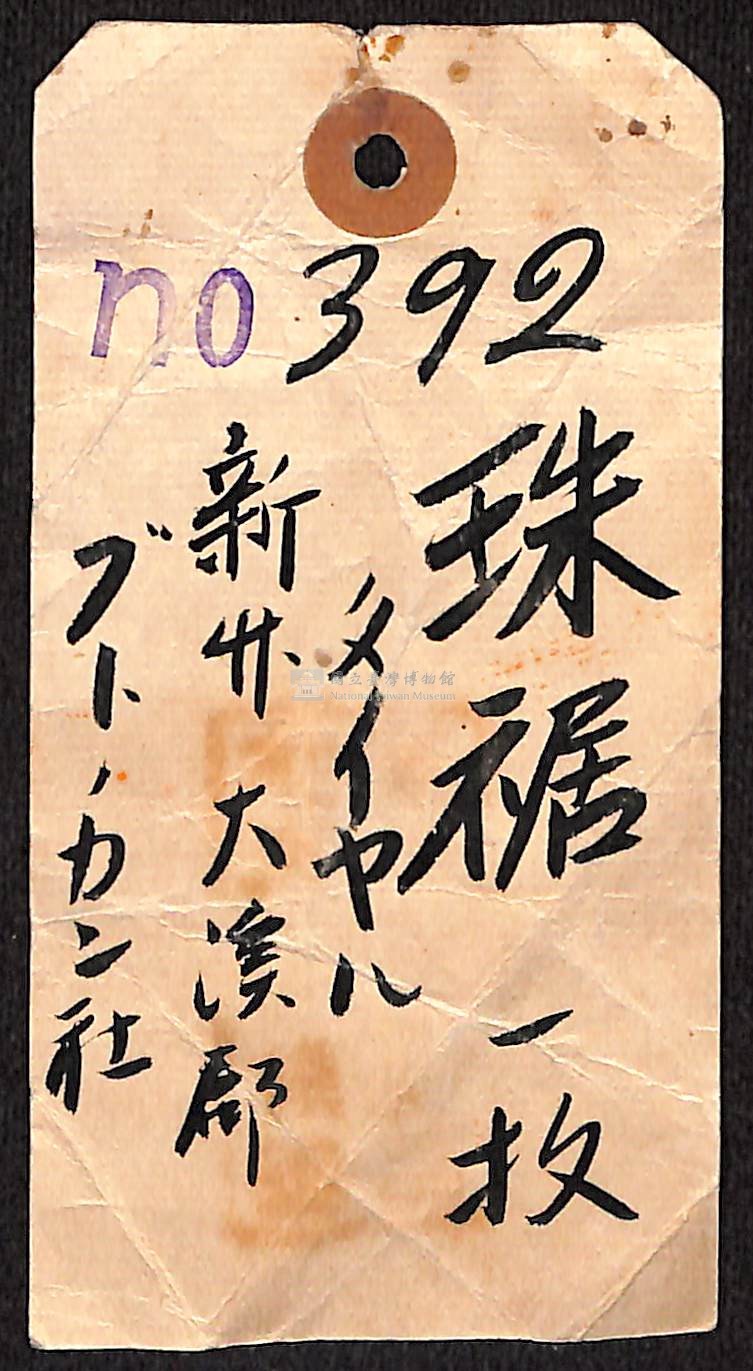 no 392
珠裾 一枚
タイヤル
新竹 大溪郡
ブトノカン社
國立臺灣博物館
National Taiwan Museum